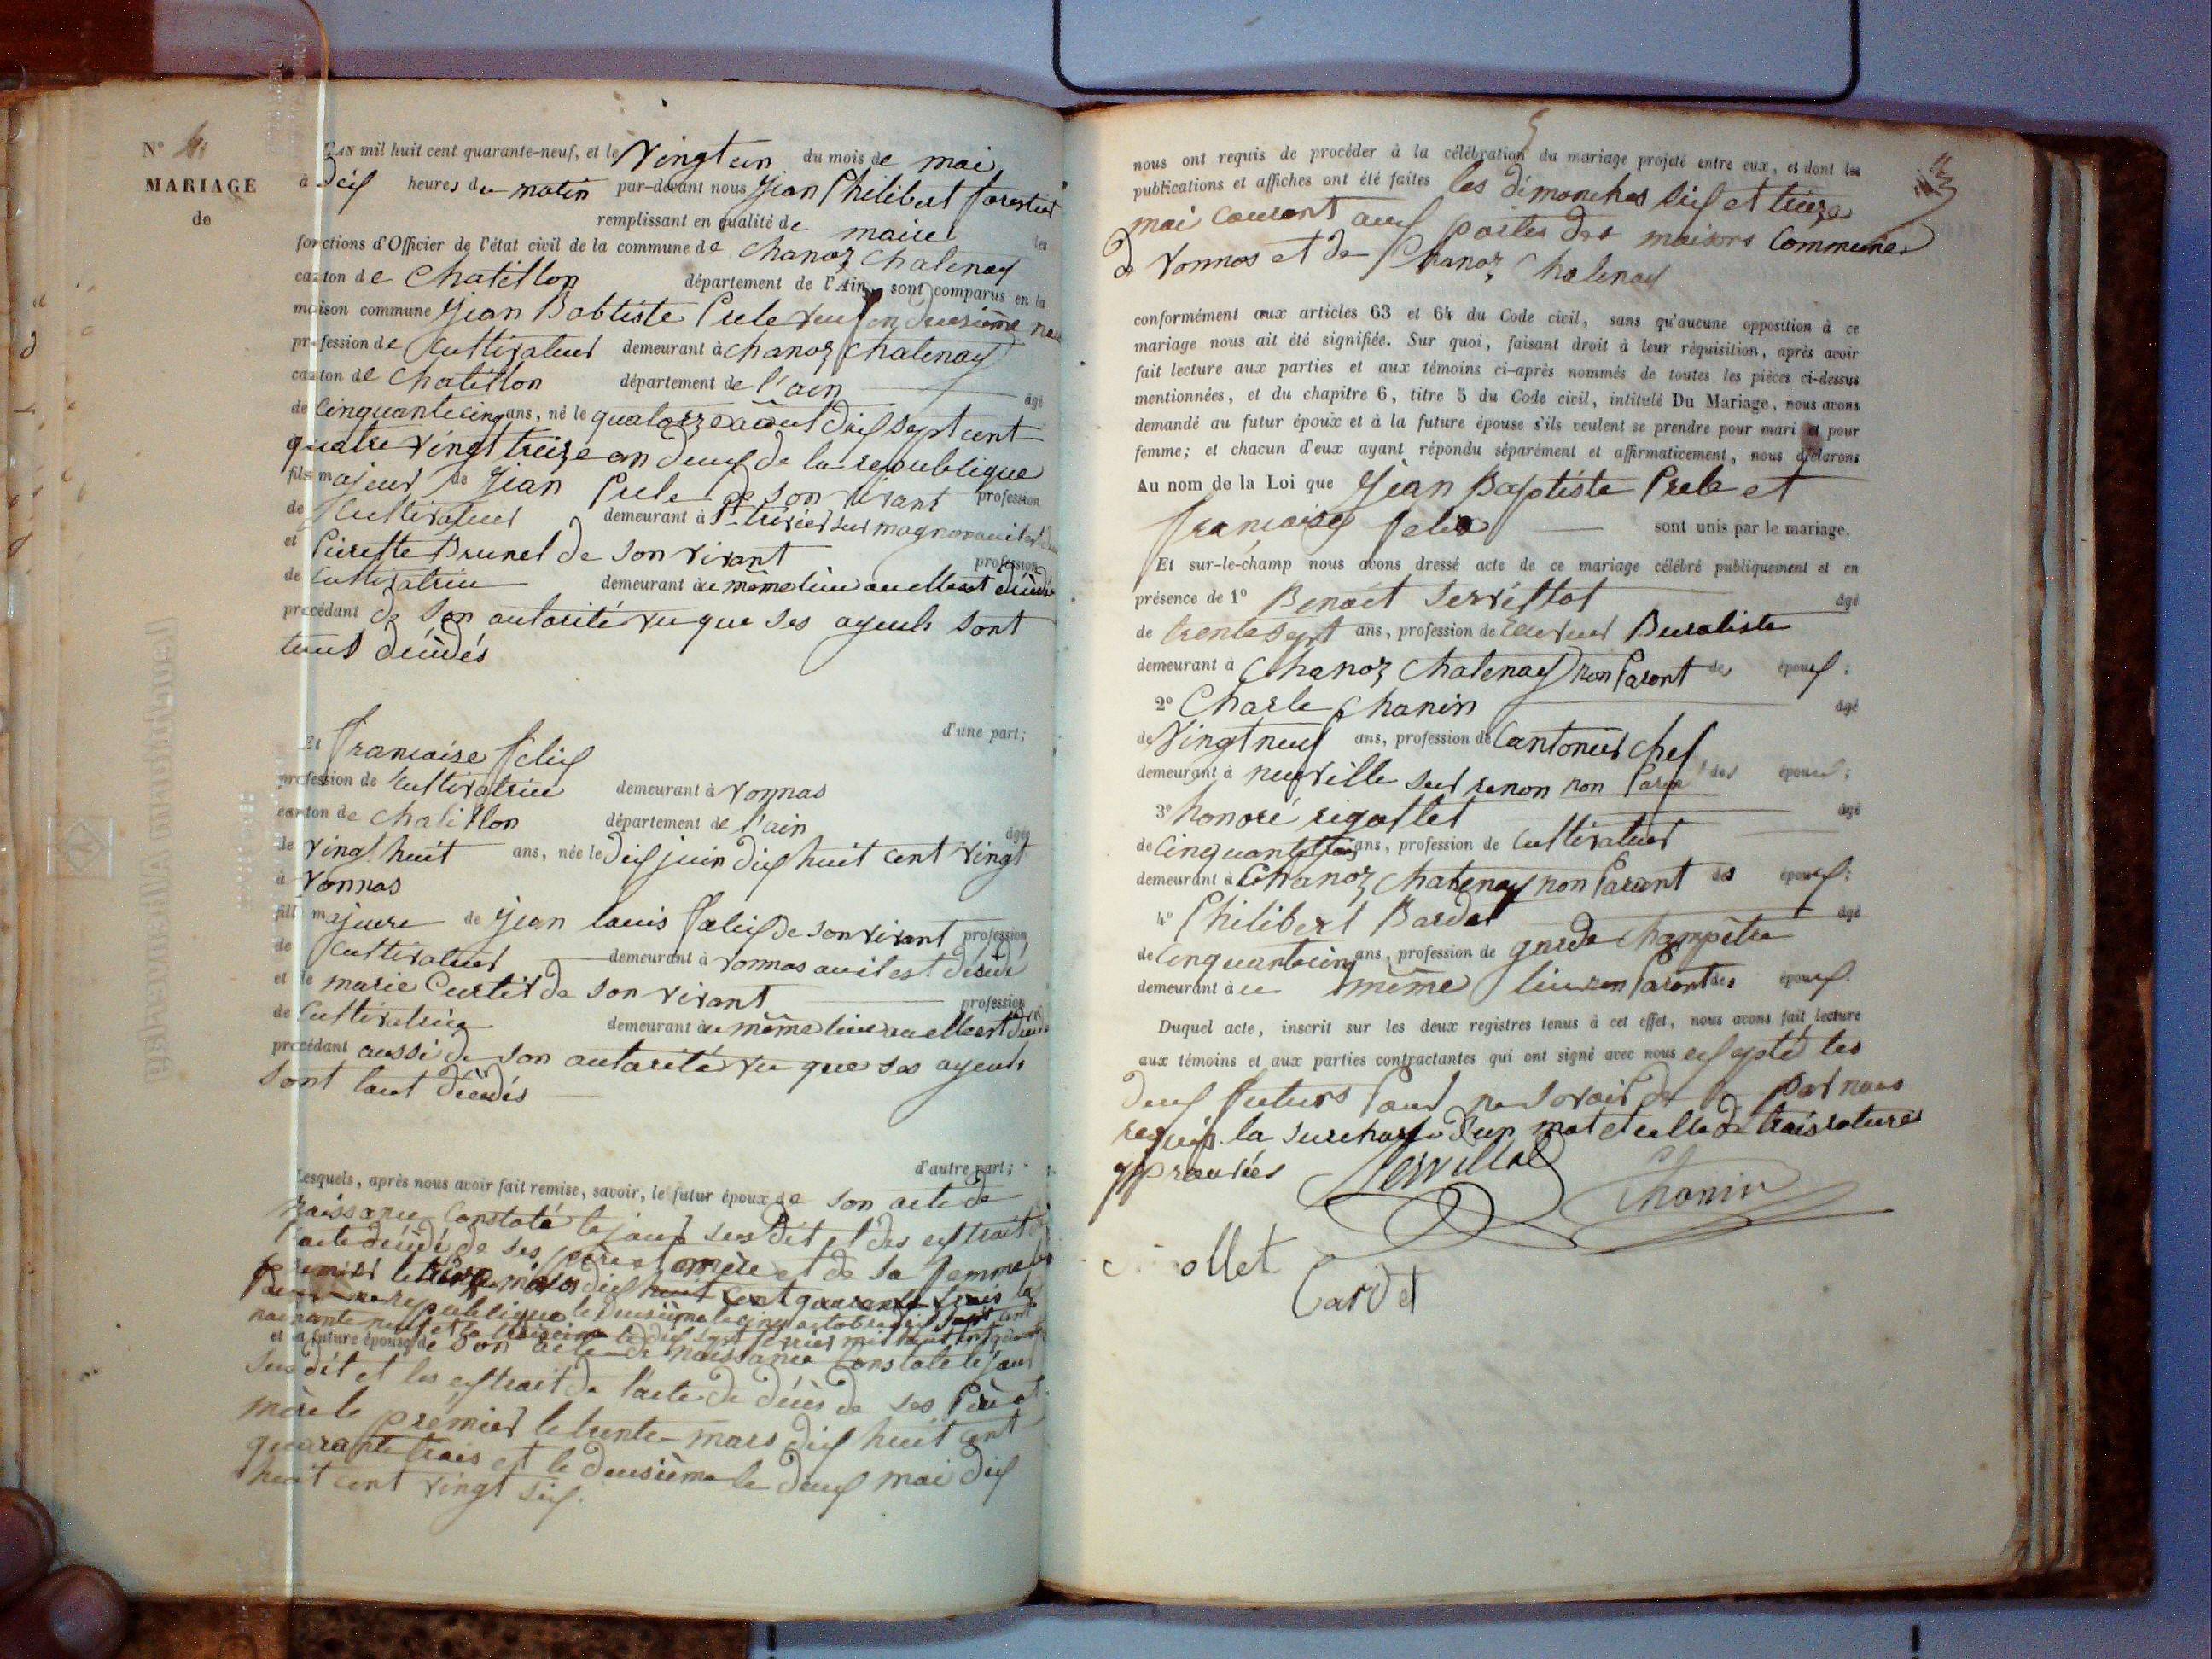 N° 4
MARIAGE
de
L'AN mil huit cent quarante-neuf, et le vingt un du mois de mai
à dix heures du matin par-devant nous Jean Philibert forestier
remplissant en qualité de maire les
fonctions d'Officier de l'état civil de la commune de chanoz chatenay
canton de chatillon département de l'Ain, sont comparus en la
maison commune Jean Babtiste Prele veuf en deusième
profession de Cultivateur demeurant à chanoz chatenay
canton de chatillon département de l'ain âgé
de cinquante cinq ans, né le quatorze août dix sept cent
quatre vingt treize an deux de la republique
fils majeur de Jean Prele de son vivant profession
de Cultivateur demeurant à St trivier sur mognon
et Pierette Brunel de son vivant profession
de Cultivatrice demeurant au même lieu ou elle est décédé
procédant de son autorité vu que ses ayeuls sont
tout décédés
d'une part;
Et francoise felix
profession de Cultivatrice demeurant à vonnas
canton de chatillon département de l'ain âgée
de vingt huit ans, née le dix juin dix huit cent vingt
à vonnas
fille majeure de jean louis felix de son vivant profession
de Cultivateur demeurant à vonnas ou il est décédé
et de marie Curtit de son vivant profession
de Cultivatrice demeurant au même lieu ou elle est
procédant aussi de son autorité vu que ses ayeuls
sont tout décédés
d'autre part;
Lesquels, après nous avoir fait remise, savoir, le futur époux de son acte de
naissance constaté le jour sus dit et des extrait de
l'acte décédé de ses père et mère et de sa femme
premier le dix huit cent quarante trois la
republique le deusième le cinq octobre dix sept cent
et la troisième le dix sept fevrier mil huit cent
et la future épouse de son acte de naissance constaté le jour
sus dit et les extrait de l'acte de décès de ses Père et
mère le premier le trente mars dix huit cent
quarante trois et le deusième le deux mai dix
huit cent vingt six.
nous ont requis de procéder à la célébration du mariage projeté entre eux, et dont les
publications et affiches ont été faites les dimanches six et treize
mai courant aux portes des maisons Communes
de Vonnas et de Chanoz Chatenay
conformément aux articles 63 et 64 du Code civil, sans qu'aucune opposition à ce
mariage nous ait été signifiée. Sur quoi, faisant droit à leur réquisition, après avoir
fait lecture aux parties et aux témoins ci-après nommés de toutes les pièces ci-dessus
mentionnées, et du chapitre 6, titre 5 du Code civil, intitulé Du Mariage, nous avons
demandé au futur époux et à la future épouse s'ils veulent se prendre pour mari et pour
femme; et chacun d'eux ayant répondu séparément et affirmativement, nous déclarons
Au nom de la Loi que Jean Baptiste Prele et
francoise felix sont unis par le mariage.
Et sur-le-champ nous avons dressé acte de ce mariage célébré publiquement et en
présence de 1° Benoit Servillat âgé
de trente sept ans, profession de Buraliste
demeurant à Chanoz chatenay non Parent des époux;
2° Charle Chanin âgé
de Vingt neuf ans, profession de Cantonier chef
demeurant à neuville sur renon non Parent des époux;
3° honoré rigollet âgé
de Cinquante ans, profession de Cultivateur
demeurant à Chanoz chatenay non Parent des époux;
4° Philibert Bardet âgé
de Cinquante cinq ans, profession de garde champêtre
demeurant à ce même lieu non Parent des époux.
Duquel acte, inscrit sur les deux registres tenus à cet effet, nous avons fait lecture
aux témoins et aux parties contractantes qui ont signé avec nous exsepté les
deux futurs Pour ne savoir de par nous
requis. la surcharge d'un mot et celle de trois ratures
approuvées Servillat
Chanin
ollet
Cardet